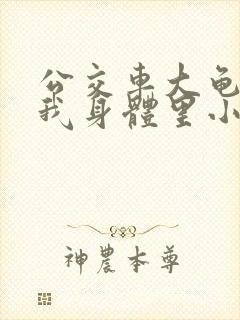 公交車大龟
我身體里小
神農本尊